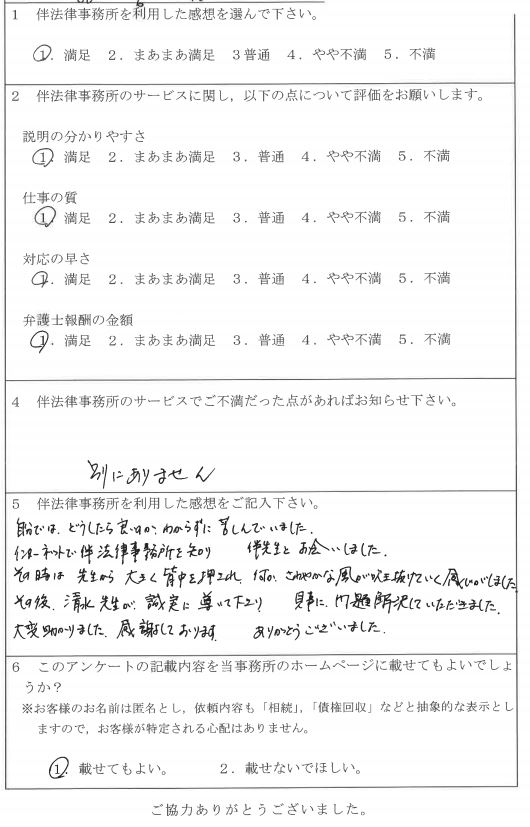 1 伴法律事務所を利用した感想を選んで下さい。
①. 満足 2. まあまあ満足 3普通 4. やや不満 5. 不満
2 伴法律事務所のサービスに関し,以下の点について評価をお願いします。
説明の分かりやすさ
①. 満足 2. まあまあ満足 3. 普通 4. やや不満 5. 不満
仕事の質
①. 満足 2. まあまあ満足 3. 普通 4. やや不満 5. 不満
対応の早さ
①. 満足 2. まあまあ満足 3. 普通 4. やや不満 5. 不満
弁護士報酬の金額
①. 満足 2. まあまあ満足 3. 普通 4. やや不満 5. 不満
4 伴法律事務所のサービスでご不満だった点があればお知らせ下さい。
別にありません
5 伴法律事務所を利用した感想をご記入下さい。
自分では、どうしたら良いのか、わからずに 苦しんでいました。
インターネットで 伴法律事務所を知り 伴先生と お会いしました。
その時は 先生から 大きく 背中を 押され、何か、さわやかな風が吹き抜けていく 感じがしました。
その後、清水先生が、誠実に 導いて下さり 見事に、問題解決していただきました。
大変助かりました。感謝しております。 ありがとうございました。
6 このアンケートの記載内容を当事務所のホームページに載せてもよいでしょ
うか?
※お客様のお名前は匿名とし,依頼内容も「相続」,「債権回収」などと抽象的な表示とし
ますので,お客様が特定される心配はありません。
①. 載せてもよい。 2. 載せないでほしい。
ご協力ありがとうございました。